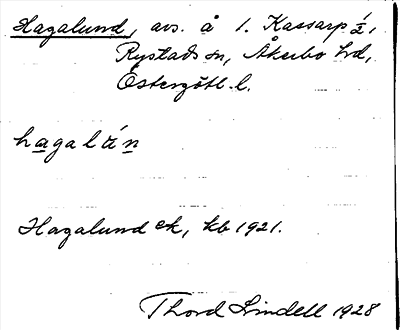 Hagalund, avs. å 1. Kassarp 1/2,
Rystads sn, Åkerbo hd,
Östergötl. l.
hagalún
Hagalund ek, kb 1921.
Thord Lindell 1928